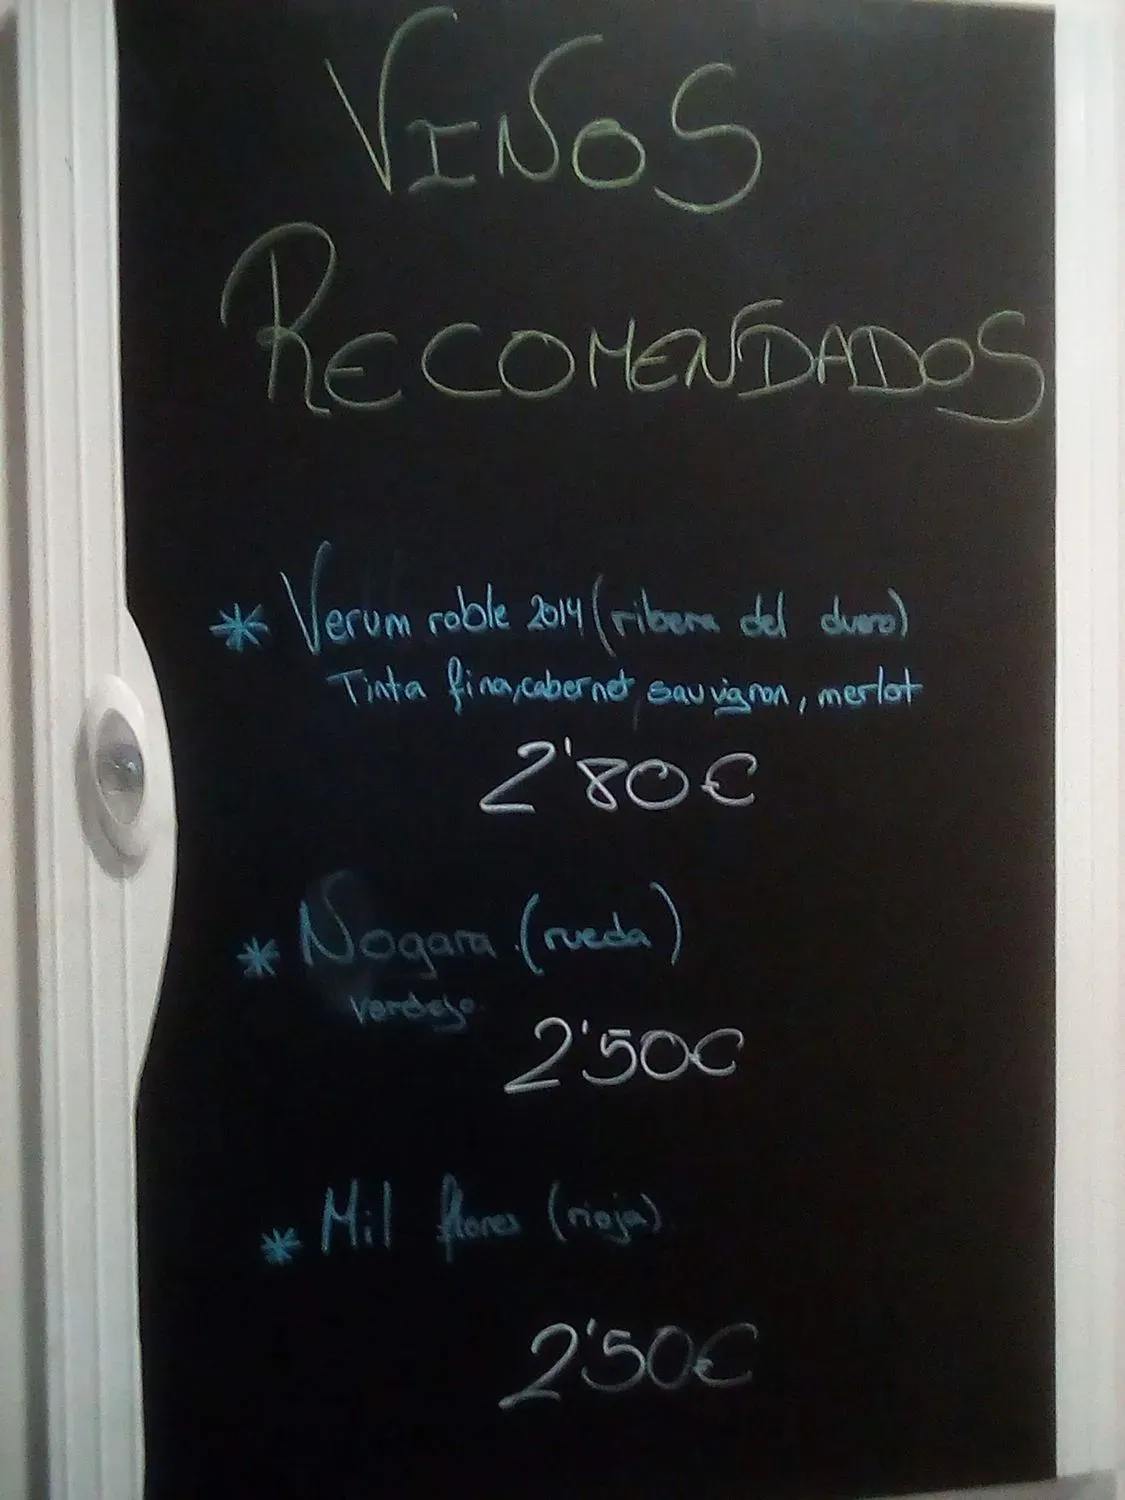 VINOS
RECOMENDADOS
* Verum roble 2014 (ribera del duero)
Tinta fina, cabernet sauvignon, merlot
2'80€
* Nogara (rueda)
verdejo
2'50€
* Mil flores (rioja)
2'50€